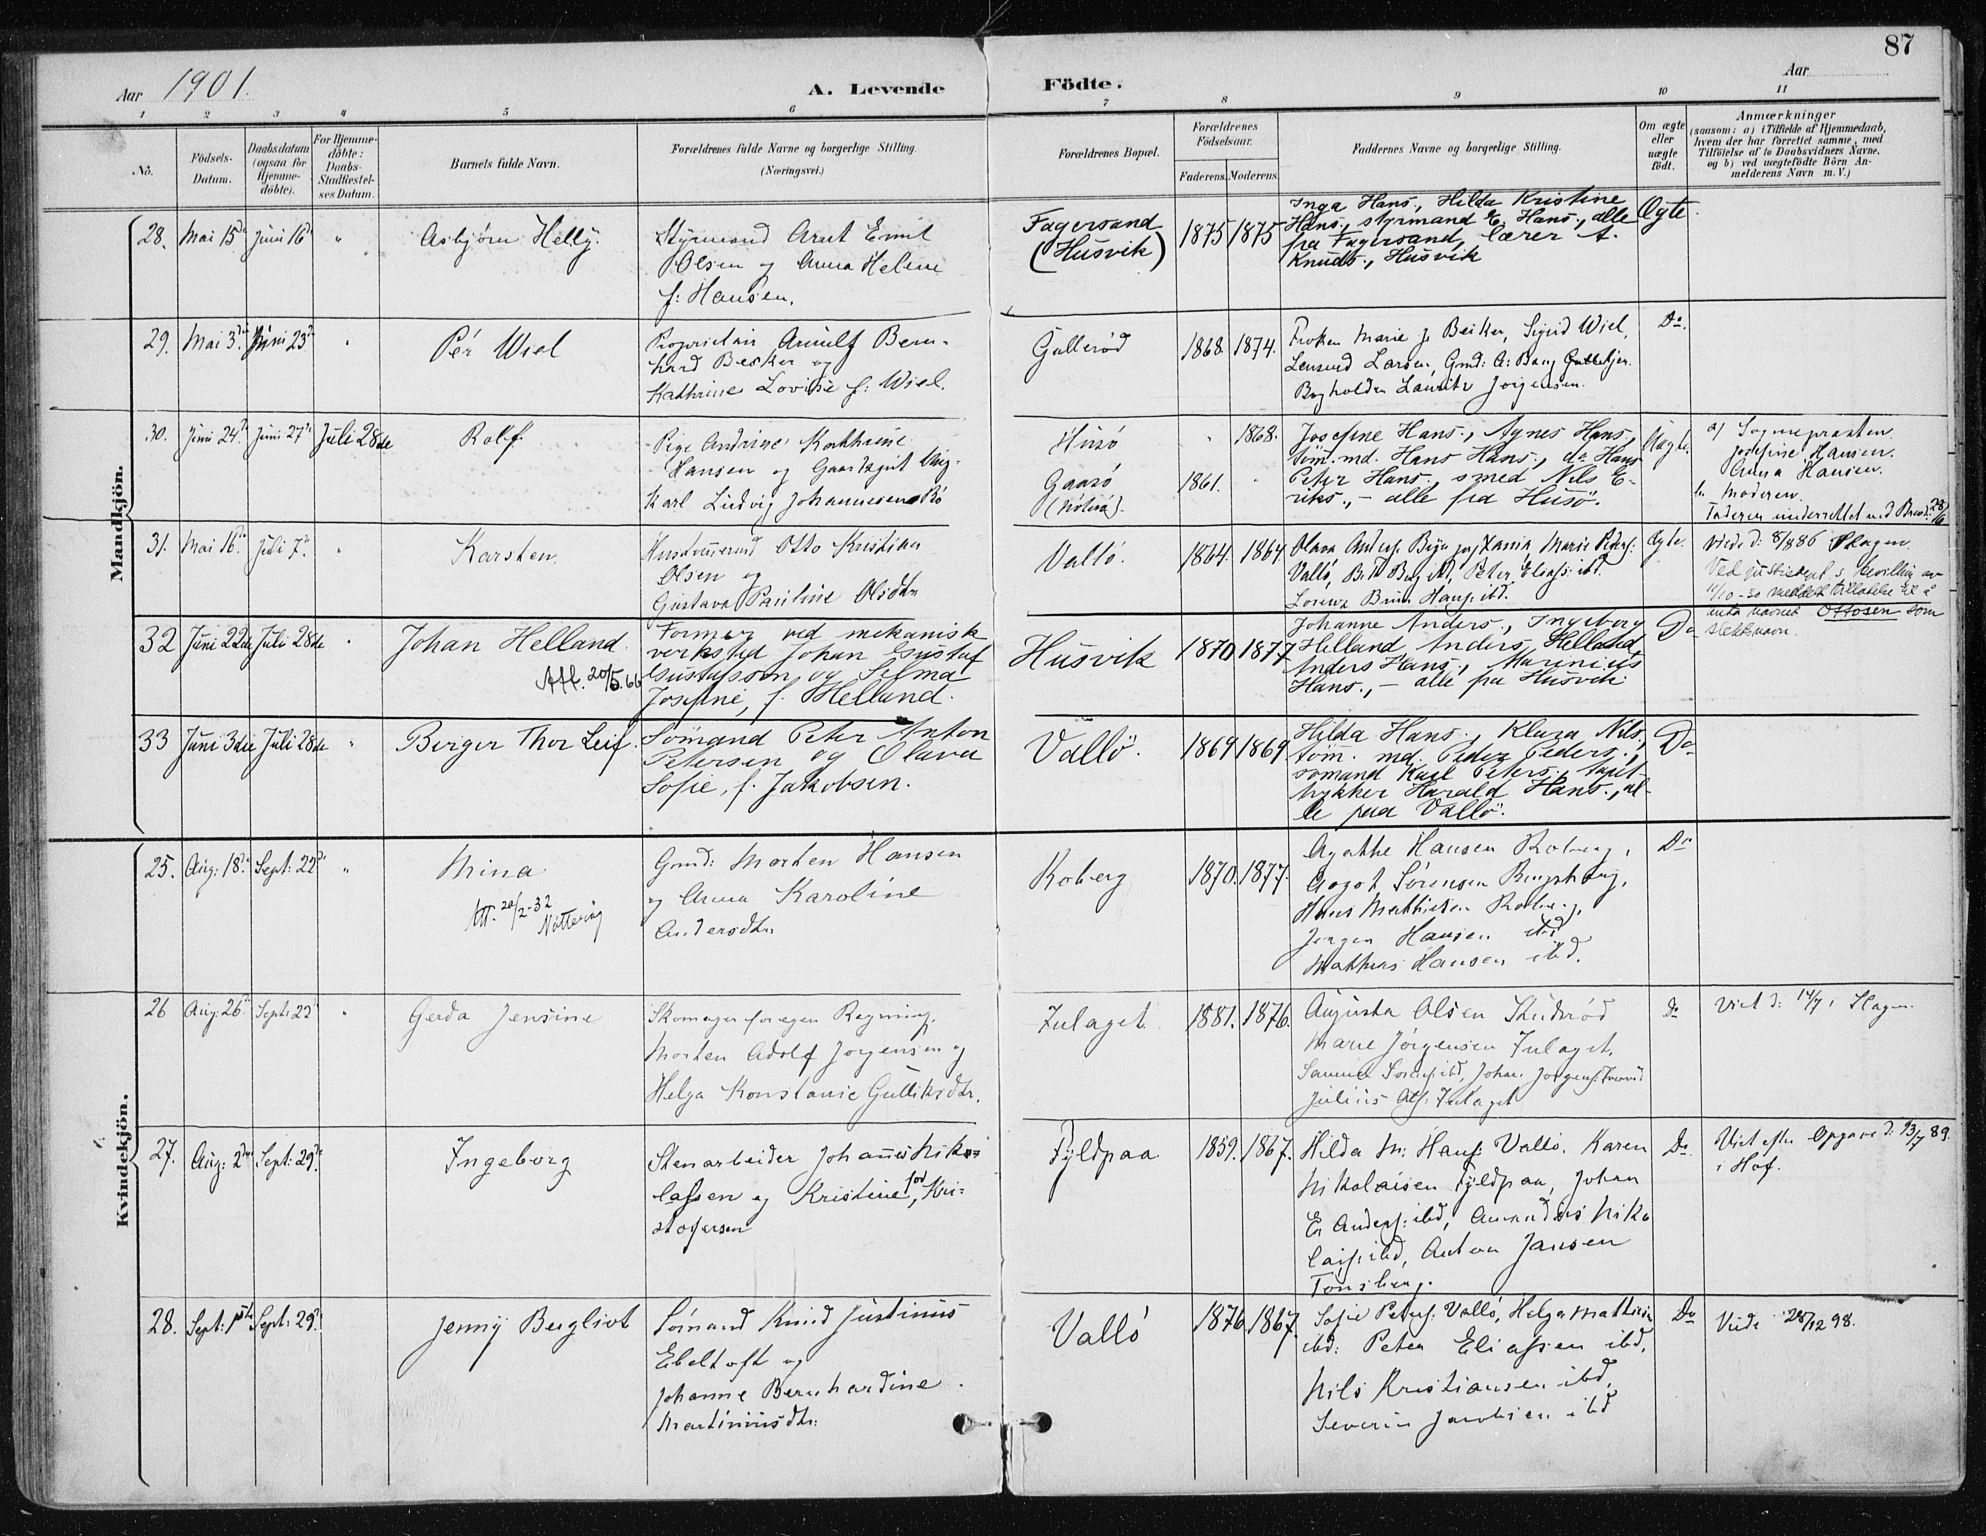 87
Aar 1901
A. Levende
Födte.
Aar
1 2 3 4 5 6 7 8 9 10 11
No.
Födsels-
Datum.
Daabsdatum
(ogsaa for
Hjemme-
döbte).
For Hjemme-
döbte:
Daabs-
Stadfæstel-
ses Datum.
Barnets fulde Navn.
Forældrenes fulde Navne og borgerlige Stilling.
(Næringsvei.)
Forældrenes Bopæl.
Forældrenes
Födselsaar.
Faderens. Moderens.
Faddernes Navne og borgerlige Stilling.
Om ægte
eller
uægte
födt.
Anmærkninger
(saasom: a) i Tilfælde af Hjemmedaab,
hvem der har forrettet samme, med
Tilföielse af to Daabsvidners Navne,
og b) ved uægtefödte Börn An-
melderens Navn m. V.)
Mandkjön.
28. Mai 15de Juni 16de "
Asbjørn Helly.
Styrmand Arnt Emil
Olsen og Anna Helene
f: Hansen.
Fagersand
(Husvik)
1875 1875
Inga Hans., Hilda Kristine
Hans., styrmand E. Hans., alle
fra Fagersand, lærer A.
Knuds., Husvik
Ægte.
29. Mai 3die Juni 23de "
Pér Wiel
Proprietær Arnulf Bern-
hard Becker og
Kathrine Lovise f: Wiel.
Gullerød
1868. 1874.
Frøken Marie J. Becker, Sigrid Wiel,
Larsen, Gmd: A: Bang
Bogholder Lauritz Jørgensen.
Do.
30. Juni 24de Juni 27de Juli 28de
Rolf
Pige Andrine Kathrine
Hansen og Gaardbruger Ung-
Karl Ludvig Johannessen Bø
Husö
Gaasö
(Nöterö).
" 1868.
1861. "
Josefine Hans., Agnes Hans.,
töm.md. Hans Hans., do Hans
Peter Hans., smed Nils E-
riks., – alle fra Husö.
Uægte.
a) Sognepræsten.
Josefine Hansen.
Anna Hansen.
b. Moderen.
Faderen underrettet ved Brev d: 28/6
31. Mai 16de Juli 7de "
Karsten.
Otto Kristian
Olsen og
Gustava Pauline Olsdtr.
Vallö.
1864. 1864
Olava Anders. Marie Peders:
Vallö, Peter Eliass: ibd.
Lorenz Brun Hans. ibd.
Ægte.
Viede d: 8/8 86 Slagen.
Ved justisdept.s bevilling av
/10-30 meddelt tillatelse til å
anta navnet Ottosen som
slektsnavn.
32 Juni 22de Juli 28de "
Johan Helland.
Att. 20/5.66
Former ved mekanisk
verksted Johan Gustaf
Gustafsson og Selma
Josefine, f. Helland.
Husvik
1870 1877
Johanne Anders., Ingeborg
Helland, Anders Helland,
Anders Hans., Marinius
Hans., – alle fra Husvik
Do
33 Juni 3die Juli 28de "
Berger Thor Leif.
Sömand Peter Anton
Petersen og Olava
Sofie, f. Jakobsen.
Vallö.
1869 1869
Hilda Hans., Klara Nils.,
töm. md. Peder Peders.,
sömand Karl Peters., tapet-
trykker Harald Hans., al-
le fra Vallö.
Do
Kvindekjön.
25. Aug: 18de Sept: 22de "
Mina
Att. 20/2-32
Nøtterøy
Gmd: Morten Hansen
og Anna Karoline
Andersdtr.
Roberg
1870. 1877.
Agathe Hansen Roberg,
Aagot Sørensen
Hans Mathisen Roberg,
Jørgen Hansen ibd
Mathias Hansen ibd.
Do
26 Aug: 26de Sept: 22de "
Gerda Jensine
Skomager for egen Regning.
Morten Adolf Jørgensen og
Helga Konstanse Gulliksdtr.
Julaget.
1881. 1876.
Augusta Olsen
Marie Jørgensen Julaget.
ibd, Johan Jørgens.
Julius Julaget
Do
Viet d: 14/7 i Slagen.
27. Aug: 2den Sept: 29de
Ingeborg
Stenarbeider Johannes Niko-
laisen og Kristine fød Kri-
stofersen
Fyldpaa
1859. 1867.
Hilda M: Hans: Vallö. Karen
Nikolaisen Fyldpaa, Johan
E. Anders: ibd, Amandus Niko
lais: ibd, Anton Jansen
Tönsberg.
Do.
Viet efter Opgave d: 23/7 89.
i Hof.
28. Sept: 1ste Sept: 29de
Jenny Bergliot
Sömand Knud Justinus
Ebeltoft og
Johanne Bernhardine
Martiniusdtr:
Vallö
1876 1867.
Sofie Peters: Vallö, Helga Mathisen
ibd: Peter Eliassen ibd,
Nils Kristiansen ibd,
Severin Jacobsen ibd
Do
Viede 28/12 98.